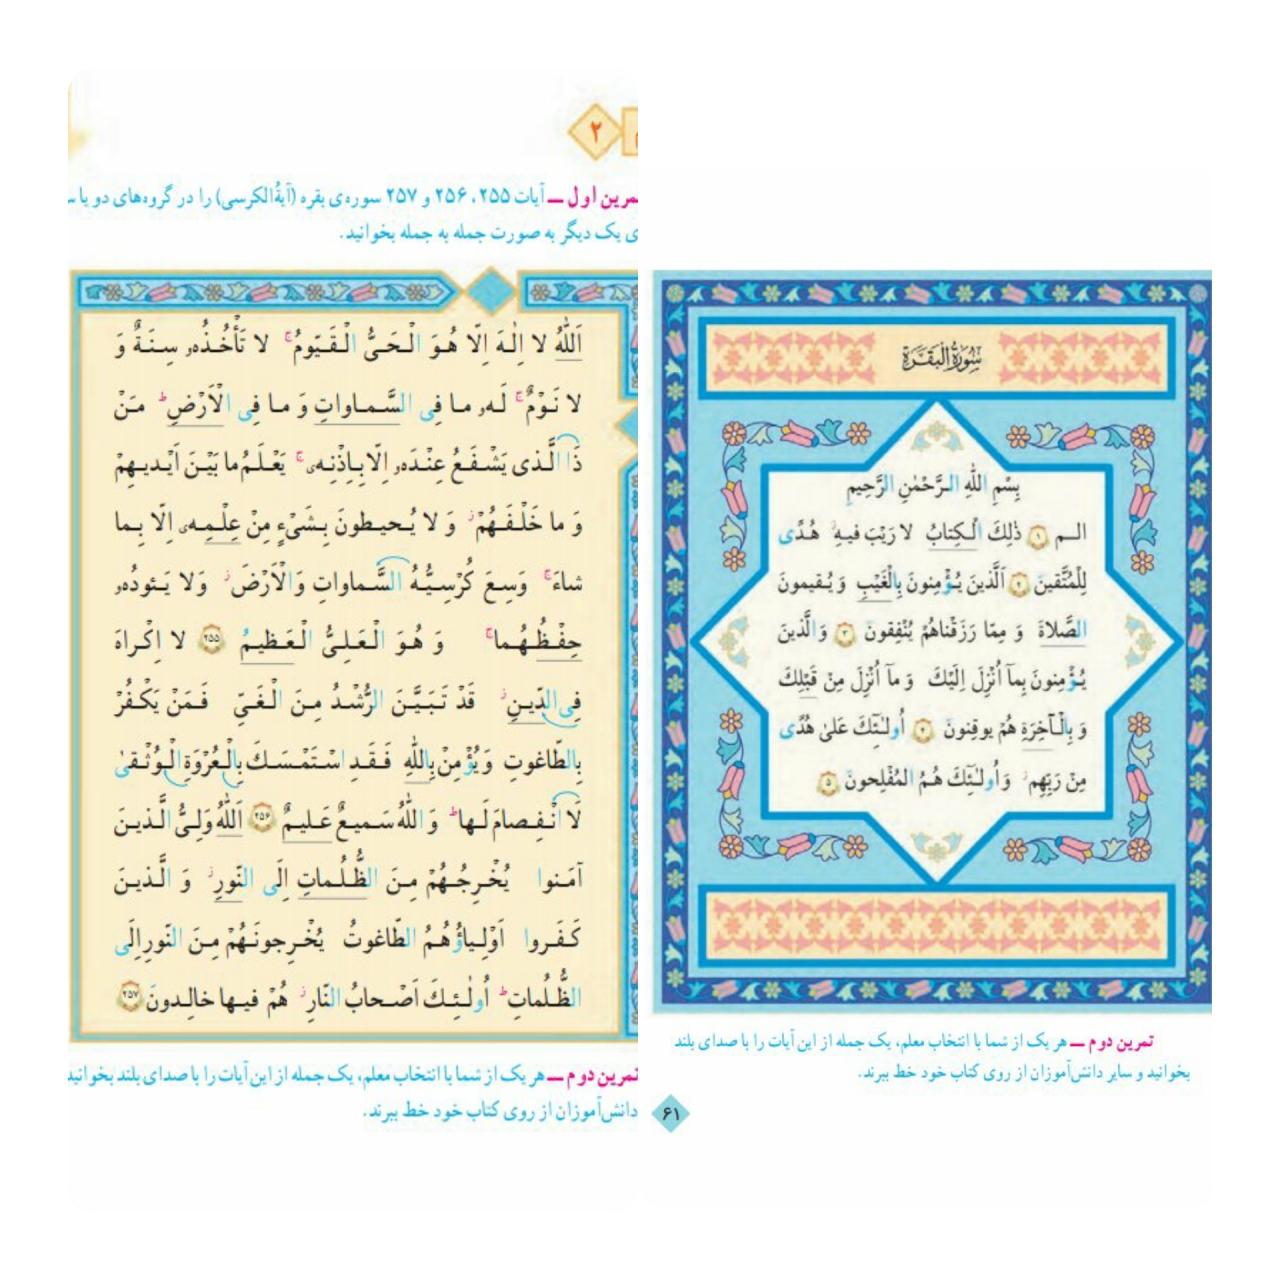 ۲
تمرین اول ــ آیات ۲۵۵، ۲۵۶ و ۲۵۷ سوره‌ی بقره (آیةُ‌الکرسی) را در گروه‌های دو یا
ی یک دیگر به صورت جمله به جمله بخوانید.
اَللّٰهُ لا اِلٰهَ اِلّا هُوَ الْحَىُّ الْقَيّومُ ۚ لا تَأْخُذُه‌ۥ سِنَةٌ وَ
لا نَوْمٌ ۚ لَه‌ۥ ما فِى السَّماواتِ وَ ما فِى الْاَرْضِ ۗ مَنْ
ذَا الَّذى يَشْفَعُ عِنْدَه‌ۥ اِلّا بِاِذْنِه‌ۦ ۚ يَعْلَمُ ما بَيْنَ اَيْديهِمْ
وَ ما خَلْفَهُمْ ۖ وَ لا يُحيطونَ بِشَىْءٍ مِنْ عِلْمِه‌ۦ اِلّا بِما
شاءَ ۚ وَسِعَ كُرْسِيُّهُ السَّماواتِ وَ الْاَرْضَ ۖ وَ لا يَئودُه‌ۥ
حِفْظُهُما ۚ وَ هُوَ الْعَلِىُّ الْعَظيمُ ۲۵۵ لا اِكْراهَ
فِى الدّينِ ۖ قَدْ تَبَيَّنَ الرُّشْدُ مِنَ الْغَىِّ فَمَنْ يَكْفُرْ
بِالطّاغوتِ وَ يُؤْمِنْ بِاللّٰهِ فَقَدِ اسْتَمْسَكَ بِالْعُرْوَةِ الْوُثْقىٰ
لَا انْفِصامَ لَها ۗ وَ اللّٰهُ سَميعٌ عَليمٌ ۲۵۶ اَللّٰهُ وَلِىُّ الَّذينَ
آمَنوا يُخْرِجُهُمْ مِنَ الظُّلُماتِ اِلَى النّورِ ۖ وَ الَّذينَ
كَفَروا اَوْلِياؤُهُمُ الطّاغوتُ يُخْرِجونَهُمْ مِنَ النّورِ اِلَى
الظُّلُماتِ ۗ اُولٰئِكَ اَصْحابُ النّارِ ۖ هُمْ فيها خالِدونَ ۲۵۷
تمرین دوم ــ هر یک از شما با انتخاب معلم، یک جمله از این آیات را با صدای بلند بخوانید
دانش‌آموزان از روی کتاب خود خط ببرند.
سُورَةُ الْبَقَرَةِ
بِسْمِ اللّٰهِ الرَّحْمٰنِ الرَّحيمِ
الم ۱ ذٰلِكَ الْكِتابُ لا رَيْبَ فيهِ ۛ هُدًى
لِلْمُتَّقينَ ۲ اَلَّذينَ يُؤْمِنونَ بِالْغَيْبِ وَ يُقيمونَ
الصَّلاةَ وَ مِمّا رَزَقْناهُمْ يُنْفِقونَ ۳ وَ الَّذينَ
يُؤْمِنونَ بِمآ اُنْزِلَ اِلَيْكَ وَ مآ اُنْزِلَ مِنْ قَبْلِكَ
وَ بِالْآخِرَةِ هُمْ يوقِنونَ ۴ اُولٰئِكَ عَلىٰ هُدًى
مِنْ رَبِّهِمْ ۖ وَ اُولٰئِكَ هُمُ الْمُفْلِحونَ ۵
تمرین دوم ــ هر یک از شما با انتخاب معلم، یک جمله از این آیات را با صدای بلند
بخوانید و سایر دانش‌آموزان از روی کتاب خود خط ببرند.
۶۱